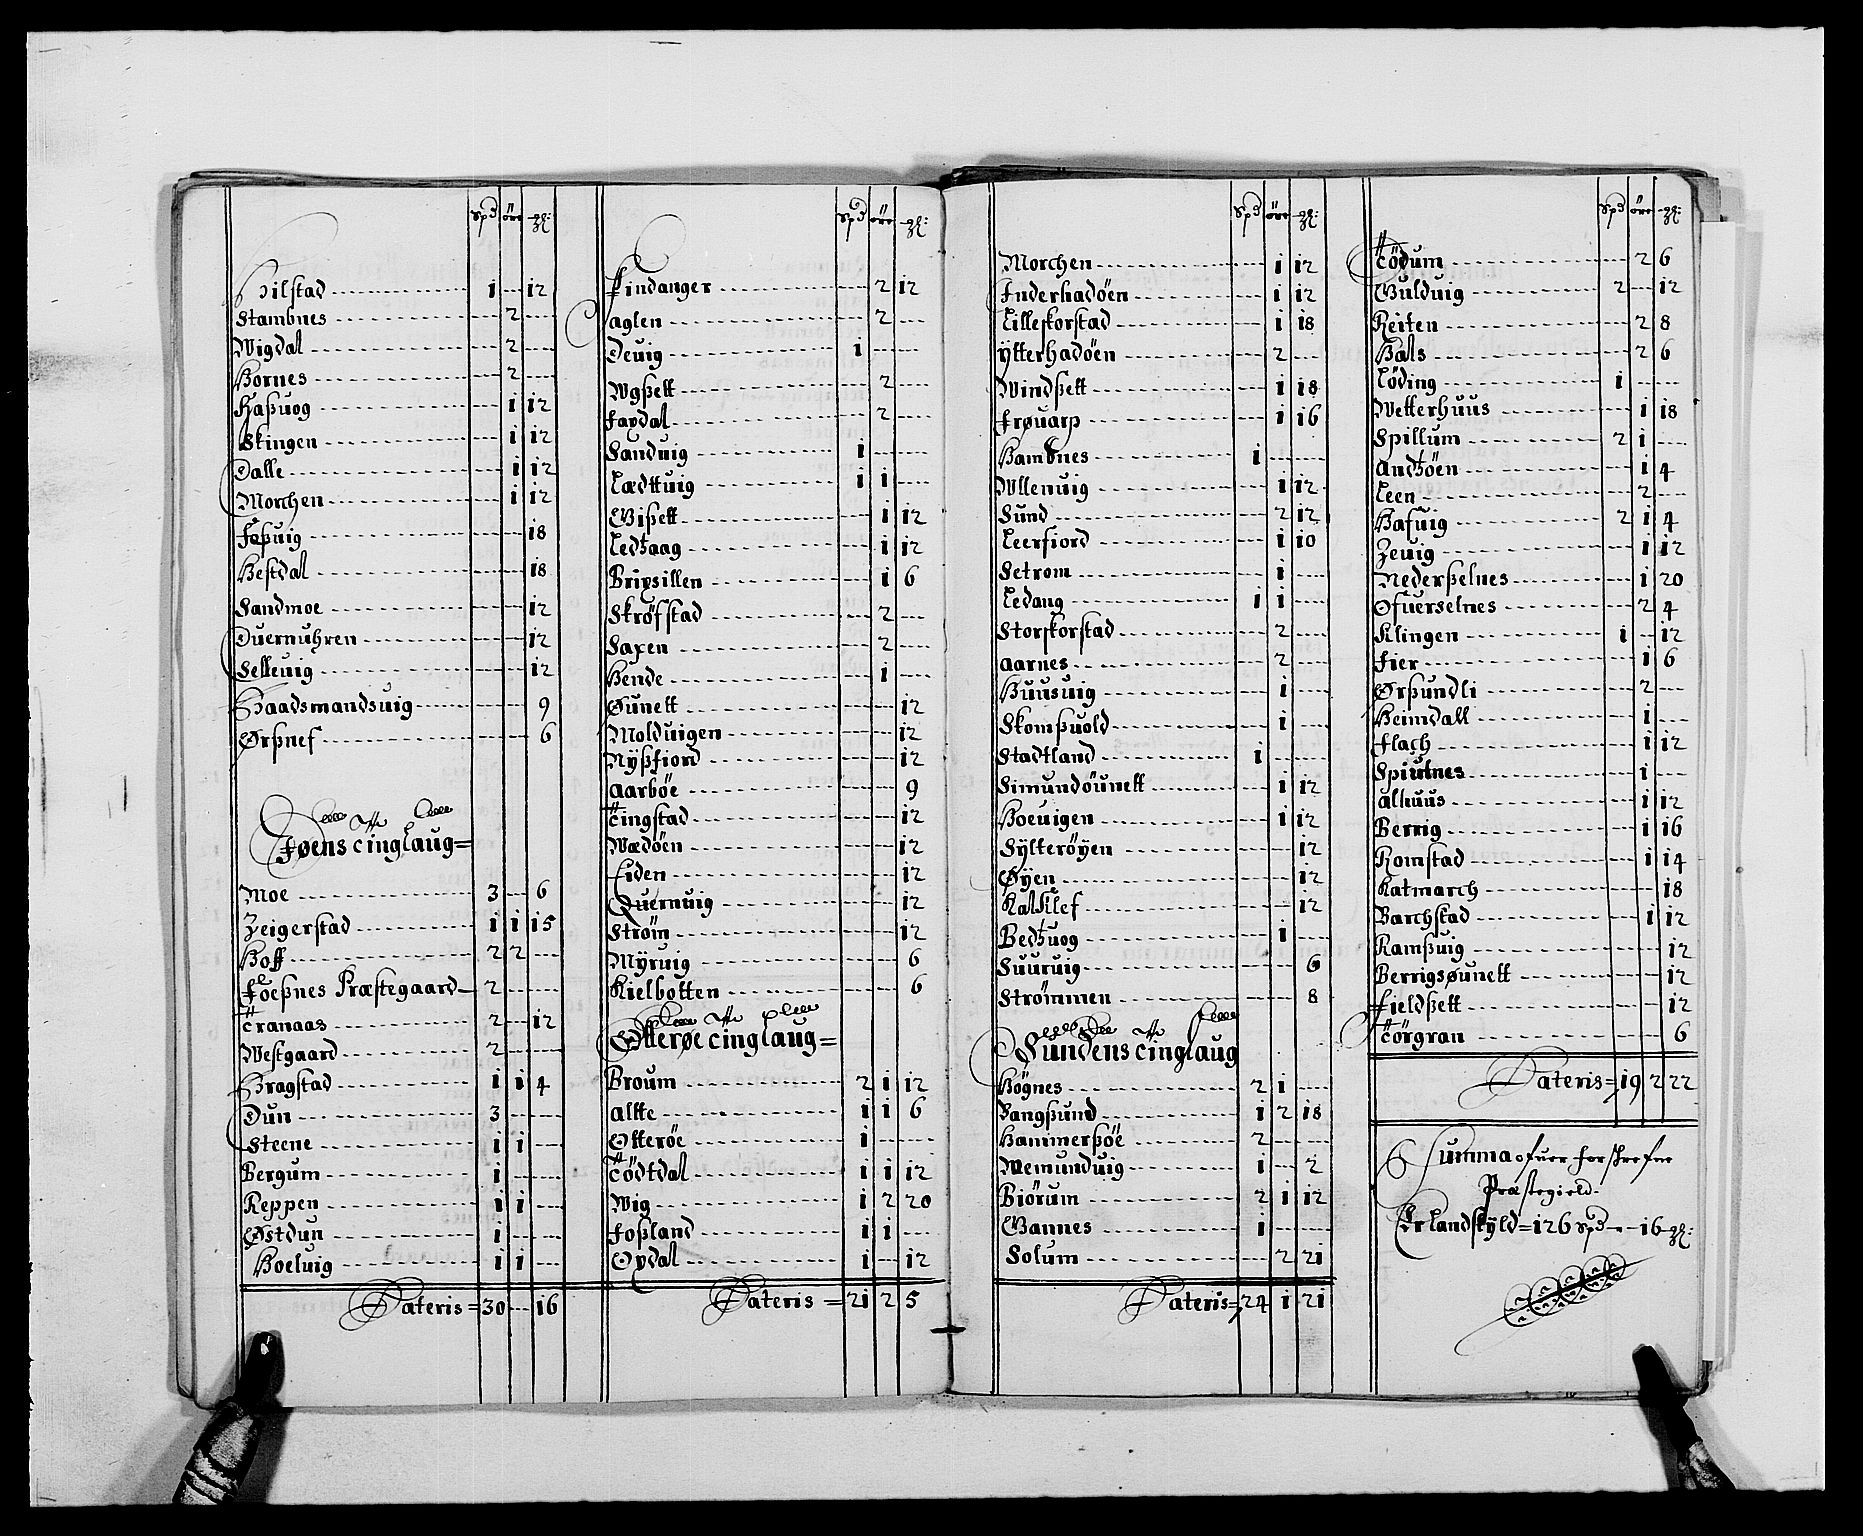 Spd öre
Hilstad 1 12
Stambnes 2
Wigdal 2
Hornes 2
Haßuog 1 12
Skingen 1 12
Dalle 1 12
Morchen 1 12
Foßuig 18
Hestdal 18
Sandmoe 12
Duernuhren 12
Selleuig 12
Haadsmandsuig 9
Ørßnef 6
Føens Tinglaug
Moe 3 6
Zeigerstad 1 1 15
Hoff 2 2
Foeßnes Præstegaard 2
Tranaas 2 12
Westgaard 2
Bragstad 1 1 4
Dun 3
Steene 1 1
Bergum 1
Reppen 1 1
Østdun 1
Hoeluig 1 1
Lateris = 30 16
Spd öre
Findanger 2 12
aglen 2
Deuig 1
Wgßett 2
Fardal 2
Sanduig 1
Lædttuig 1 1
Wißett 1 12
Ledtzaag 1 12
Brixsillen 1 6
Skröfstad 2
Saxen 2
Hende 1
Øunett 12
Molduigen 12
Nyßfiord 12
aarböe 9
Tingstad 12
Wædöen 12
Eiden 12
Quernuig 12
Ström 12
Myruig 6
Kielbotten 6
Otterøe Tinglaug =
Broum 2 1 12
altte 1 1 6
Otteröe 1
Tödtdal 1 1 12
Wig 1 2 20
Foßland 1 1
Opdal 1 12
Lateris = 21 2 5
Spd öre
Morchen 1 12
Inderhadöen 1 12
Lilleforstad 1 18
ytterhadöen 2
Windßett 1 18
Frøuarp 1 16
Hambnes 1
Wllenuig 1 12
Sund 2 12
Leerfiord 1 10
Setrom 1
Ledang 1 1
Storforstad 2
aarnes 2
Huusuig 1
Skomßuold 1
Stadtland 1
Simundöunett 1 12
Hoeuigen 1 12
Sylteröyen 12
Øyen 12
Kalklef 12
Bedtzuog 1
Suuruig 6
Strömmen 8
Sundens Tinglaug
Högnes 2 1
Bangßund 1 2 18
Hammerßöe 2
Wemunduig 1 2
Biörum 2 1 12
Wannes 1
Solum 2 21
Lateris = 24 1 21
Spd öre
Tödum 2 6
Wulduig 2 12
Reiten 2 8
Hals 2 6
Löding 1
Wetterhuus 1 18
Spillum 2 1
andtzöen 1 4
Leen 2
Hafuig 2 1 4
Zeuig 1 12
Nederßelnes 1 20
Ofuerselnes 2 4
Klingen 1 12
Fier 1 6
Ørßundli 2
Heimdall 1
Flach 1 12
Spiutnes 1
alhuus 1 12
Berrig 1 16
Romstad 1 14
Katmarch 18
Barchstad 1 12
Ramßuig 12
Berrigsøunett 12
Fieldßett 12
Törgran 6
Lateris = 19 2 22
Summa ofuer forschrefne
Præstegield
Er landskyld = 126 Spd 16